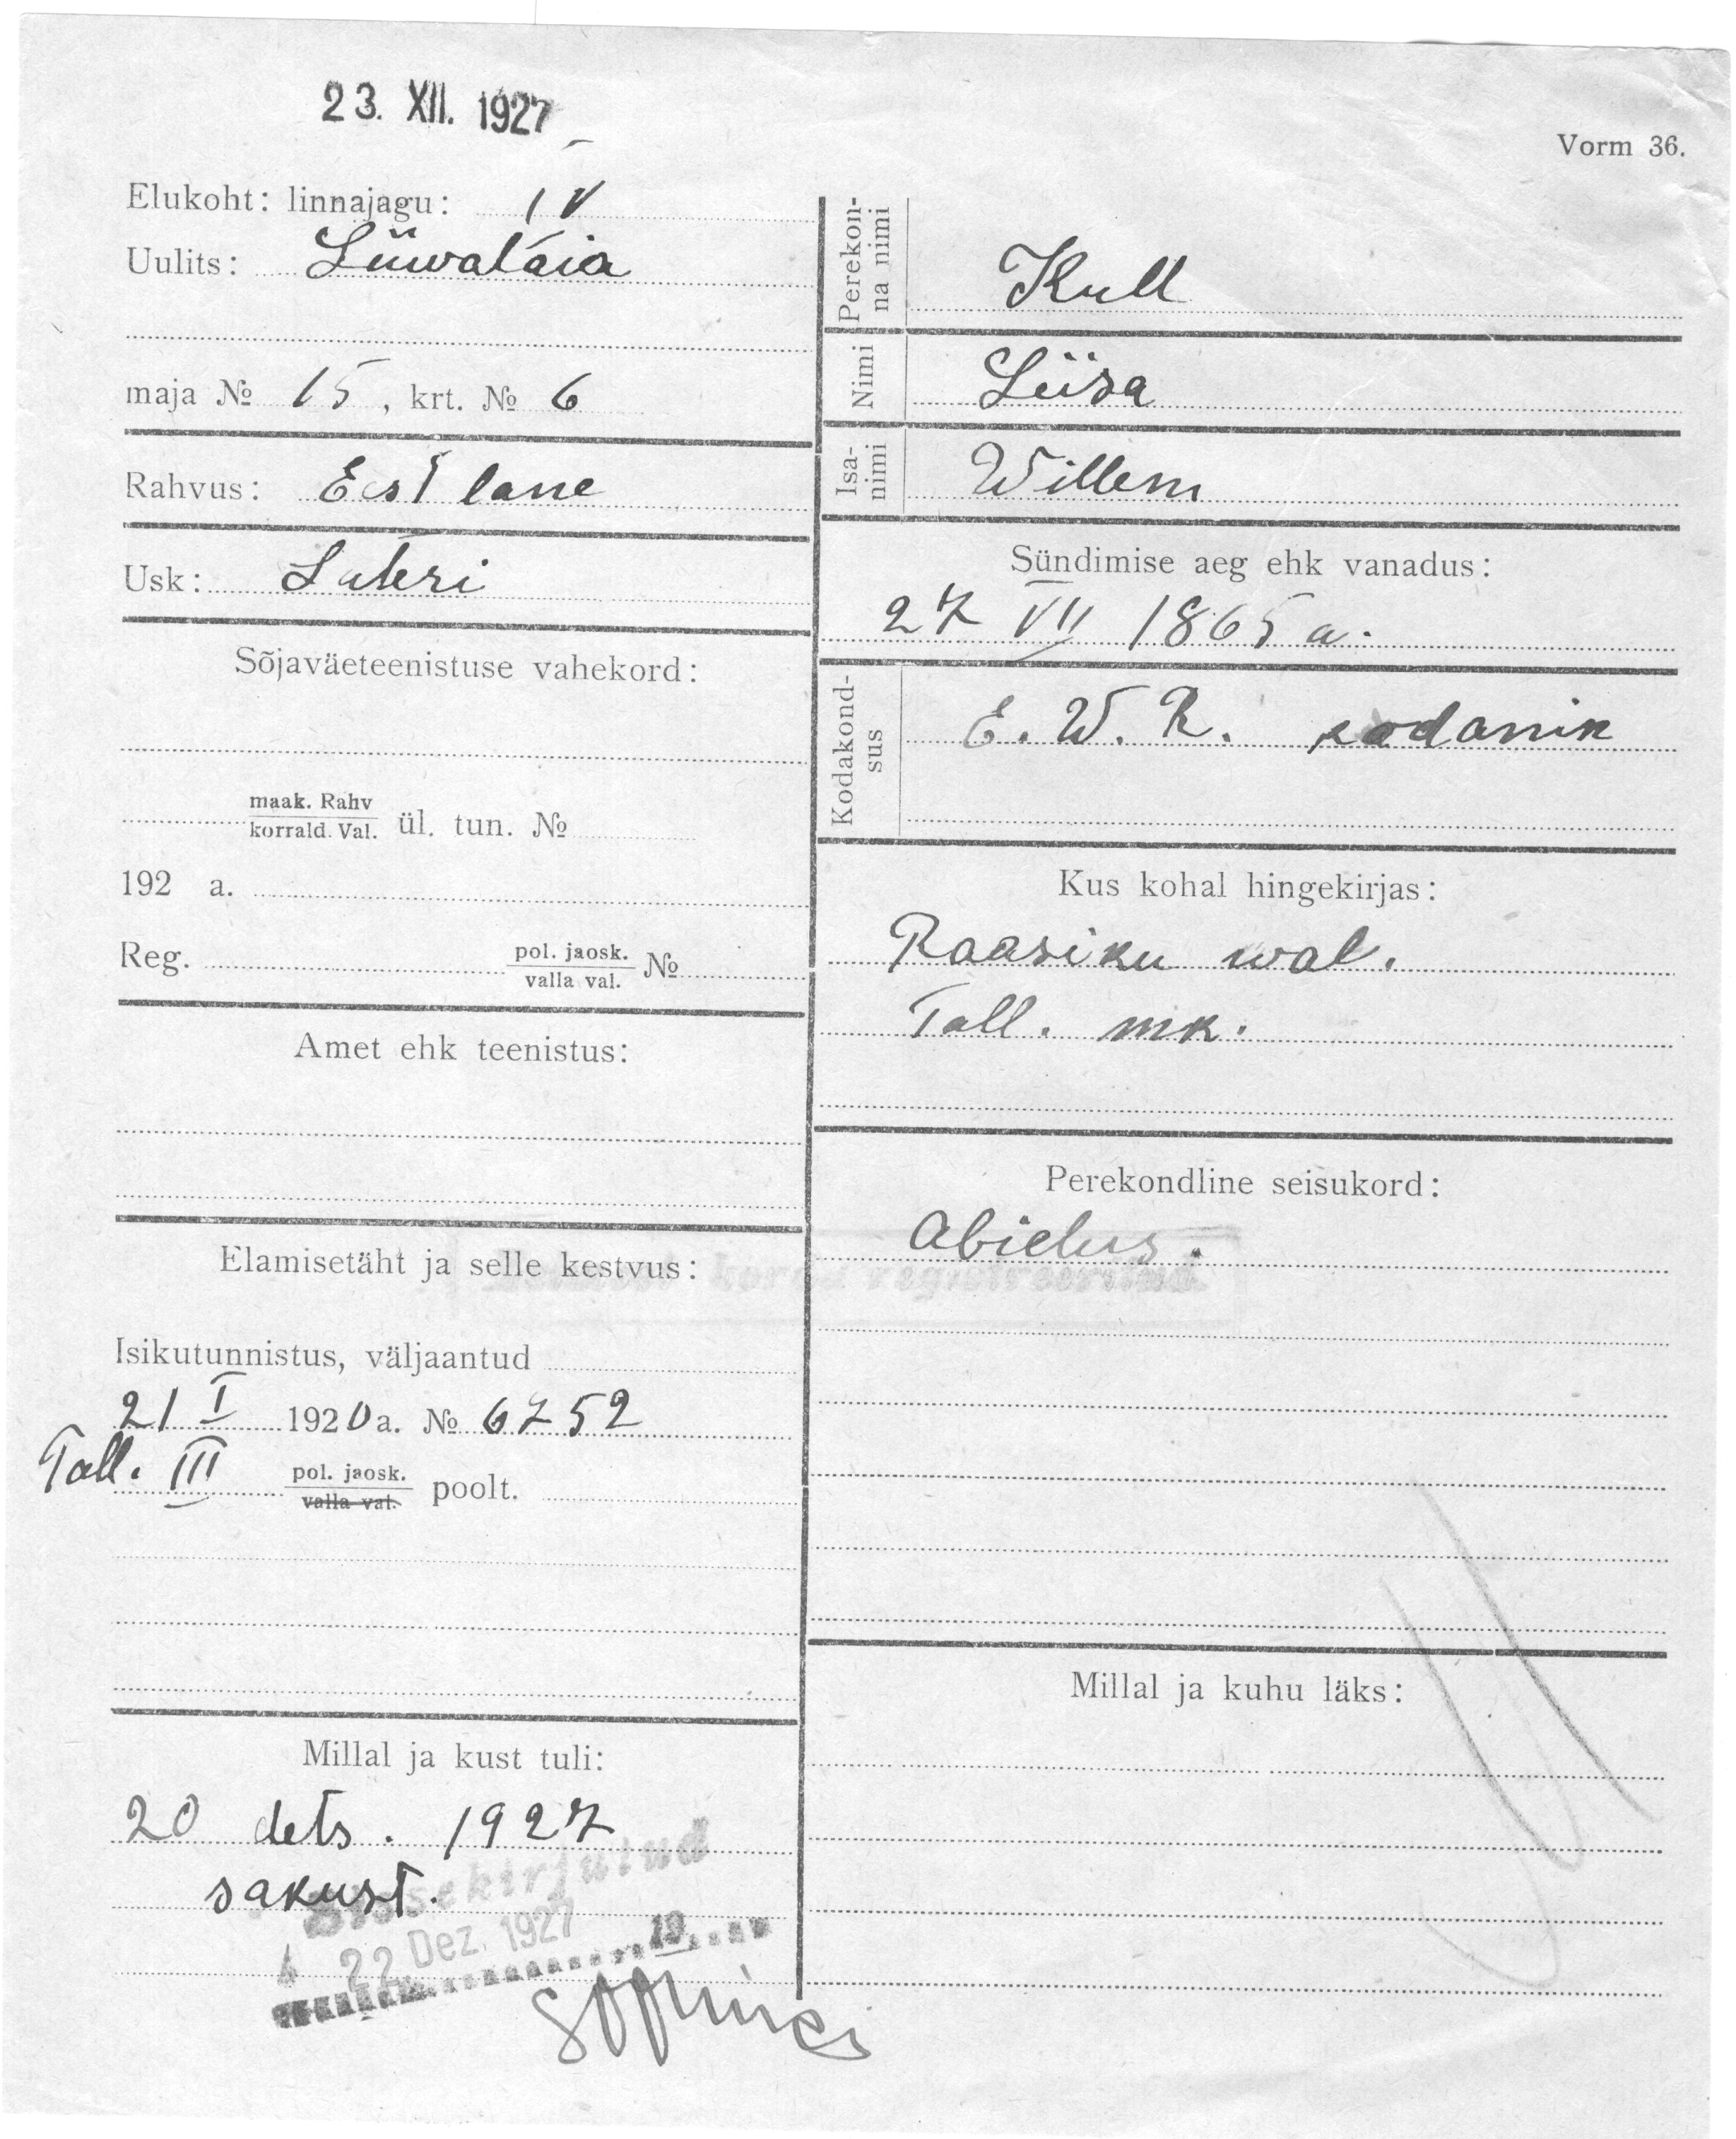 23. XII. 1927
Vorm 36.
Elukoht: linnajagu: IV
Uulits: Liiwalaia
maja № 15, krt. № 6
Rahvus: Eestlane
Usk: Luteri
Sõjaväeteenistuse vahekord:
maak. Rahv
korrald. Val. ül. tun. №
192 a.
Reg. pol. jaosk. №
valla val.
Amet ehk teenistus:
Elamisetäht ja selle kestvus:
Isikutunnistus, väljaantud
21 I 1920 a. № 6752
Tall. III pol. jaosk. poolt.
valla val.
Millal ja kust tuli:
20 dets. 1927
sakust.
Sissekirjutud
4 22 Dez. 1927
19
Perekon-
na nimi
Kull
Nimi
Liisa
Isa-
nimi
Willem
Sündimise aeg ehk vanadus:
27 VII 1865 a.
Kodakond-
sus
E. W. R. kodanik
Kus kohal hingekirjas:
Raasiku wal.
Tall. mk.
Perekondline seisukord:
Abielus.
korra registreeritud
Millal ja kuhu läks: